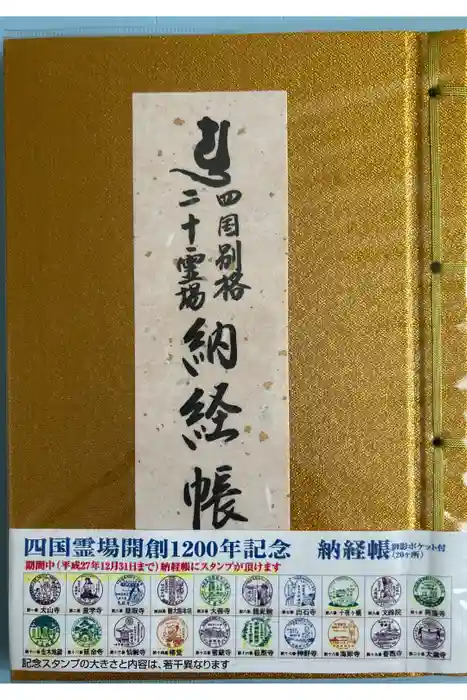 四国別格
二十霊場
納経帳
四国霊場開創1200年記念
納経帳
御影ポケット付
(20ヶ所)
期間中(平成27年12月31日まで)納経帳にスタンプが頂けます
第一番 大山寺
第二番 童学寺
慈眼寺
鯖大師本坊
大善寺
龍光院
出石寺
十夜ヶ橋
文殊院
興隆寺
生木地蔵
延命寺
仙龍寺
椿堂
箱蔵寺
萱原寺
神野寺
海岸寺
香西寺
大瀧寺
記念スタンプの大きさと内容は、若干異なります